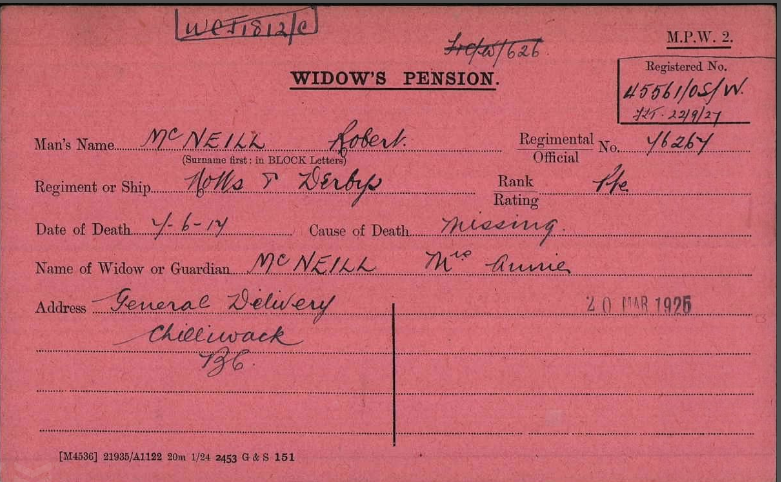 WCF1812/C
/626
M.P.W. 2.
WIDOW'S PENSION.
Registered No.
45561/OS/W.
22/9/27
Man's Name McNEILL Robert. Regimental Official No. 76267
(Surname first: in BLOCK Letters)
Regiment or Ship Notts & Derbys Rank Rating Pte
Date of Death 7-6-17 Cause of Death Missing.
Name of Widow or Guardian McNEILL Mrs Annie
Address General Delivery
20 MAR 1925
Chilliwack
BC.
[M4536] 21935/A1122 20m 1/24 2453 G & S 151